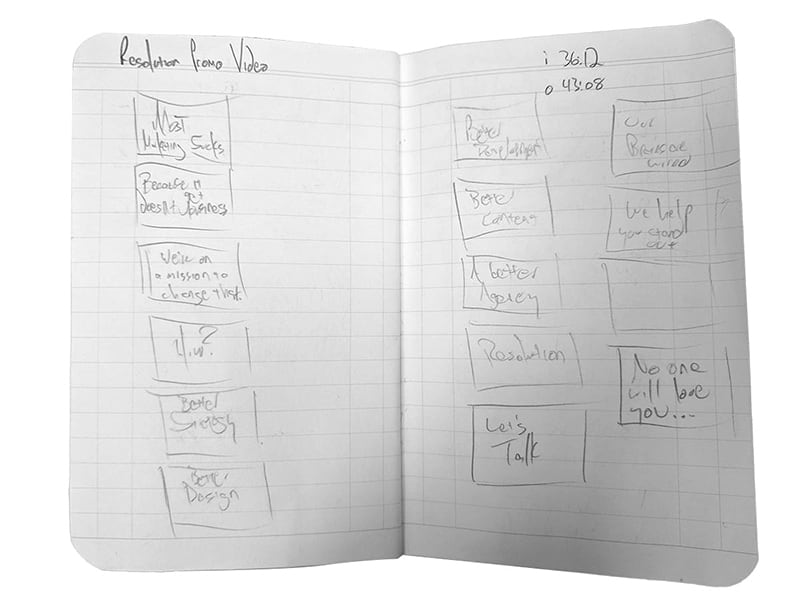 Resolution Promo Video
Most
Marketing Sucks
Because it
doesn't get business
We're on
a mission to
change that.
How?
Better
Strategy
Better
Design
i 36:12
o 43:08
Better
Development
Better
Content
A better
Agency
Resolution
Let's
Talk
Our
Brains are
wired
We help
you stand
out
No one
will love
you...